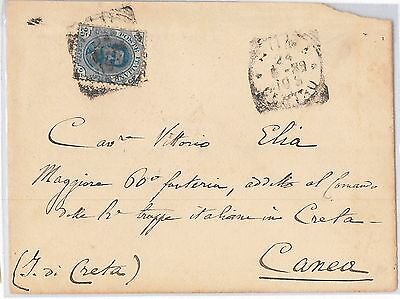 Cav.re Vittorio Elia
Maggiore 60° fanteria, addetto al Comando
delle R.e truppe italiane in Creta –
Canea
(I. di Creta)